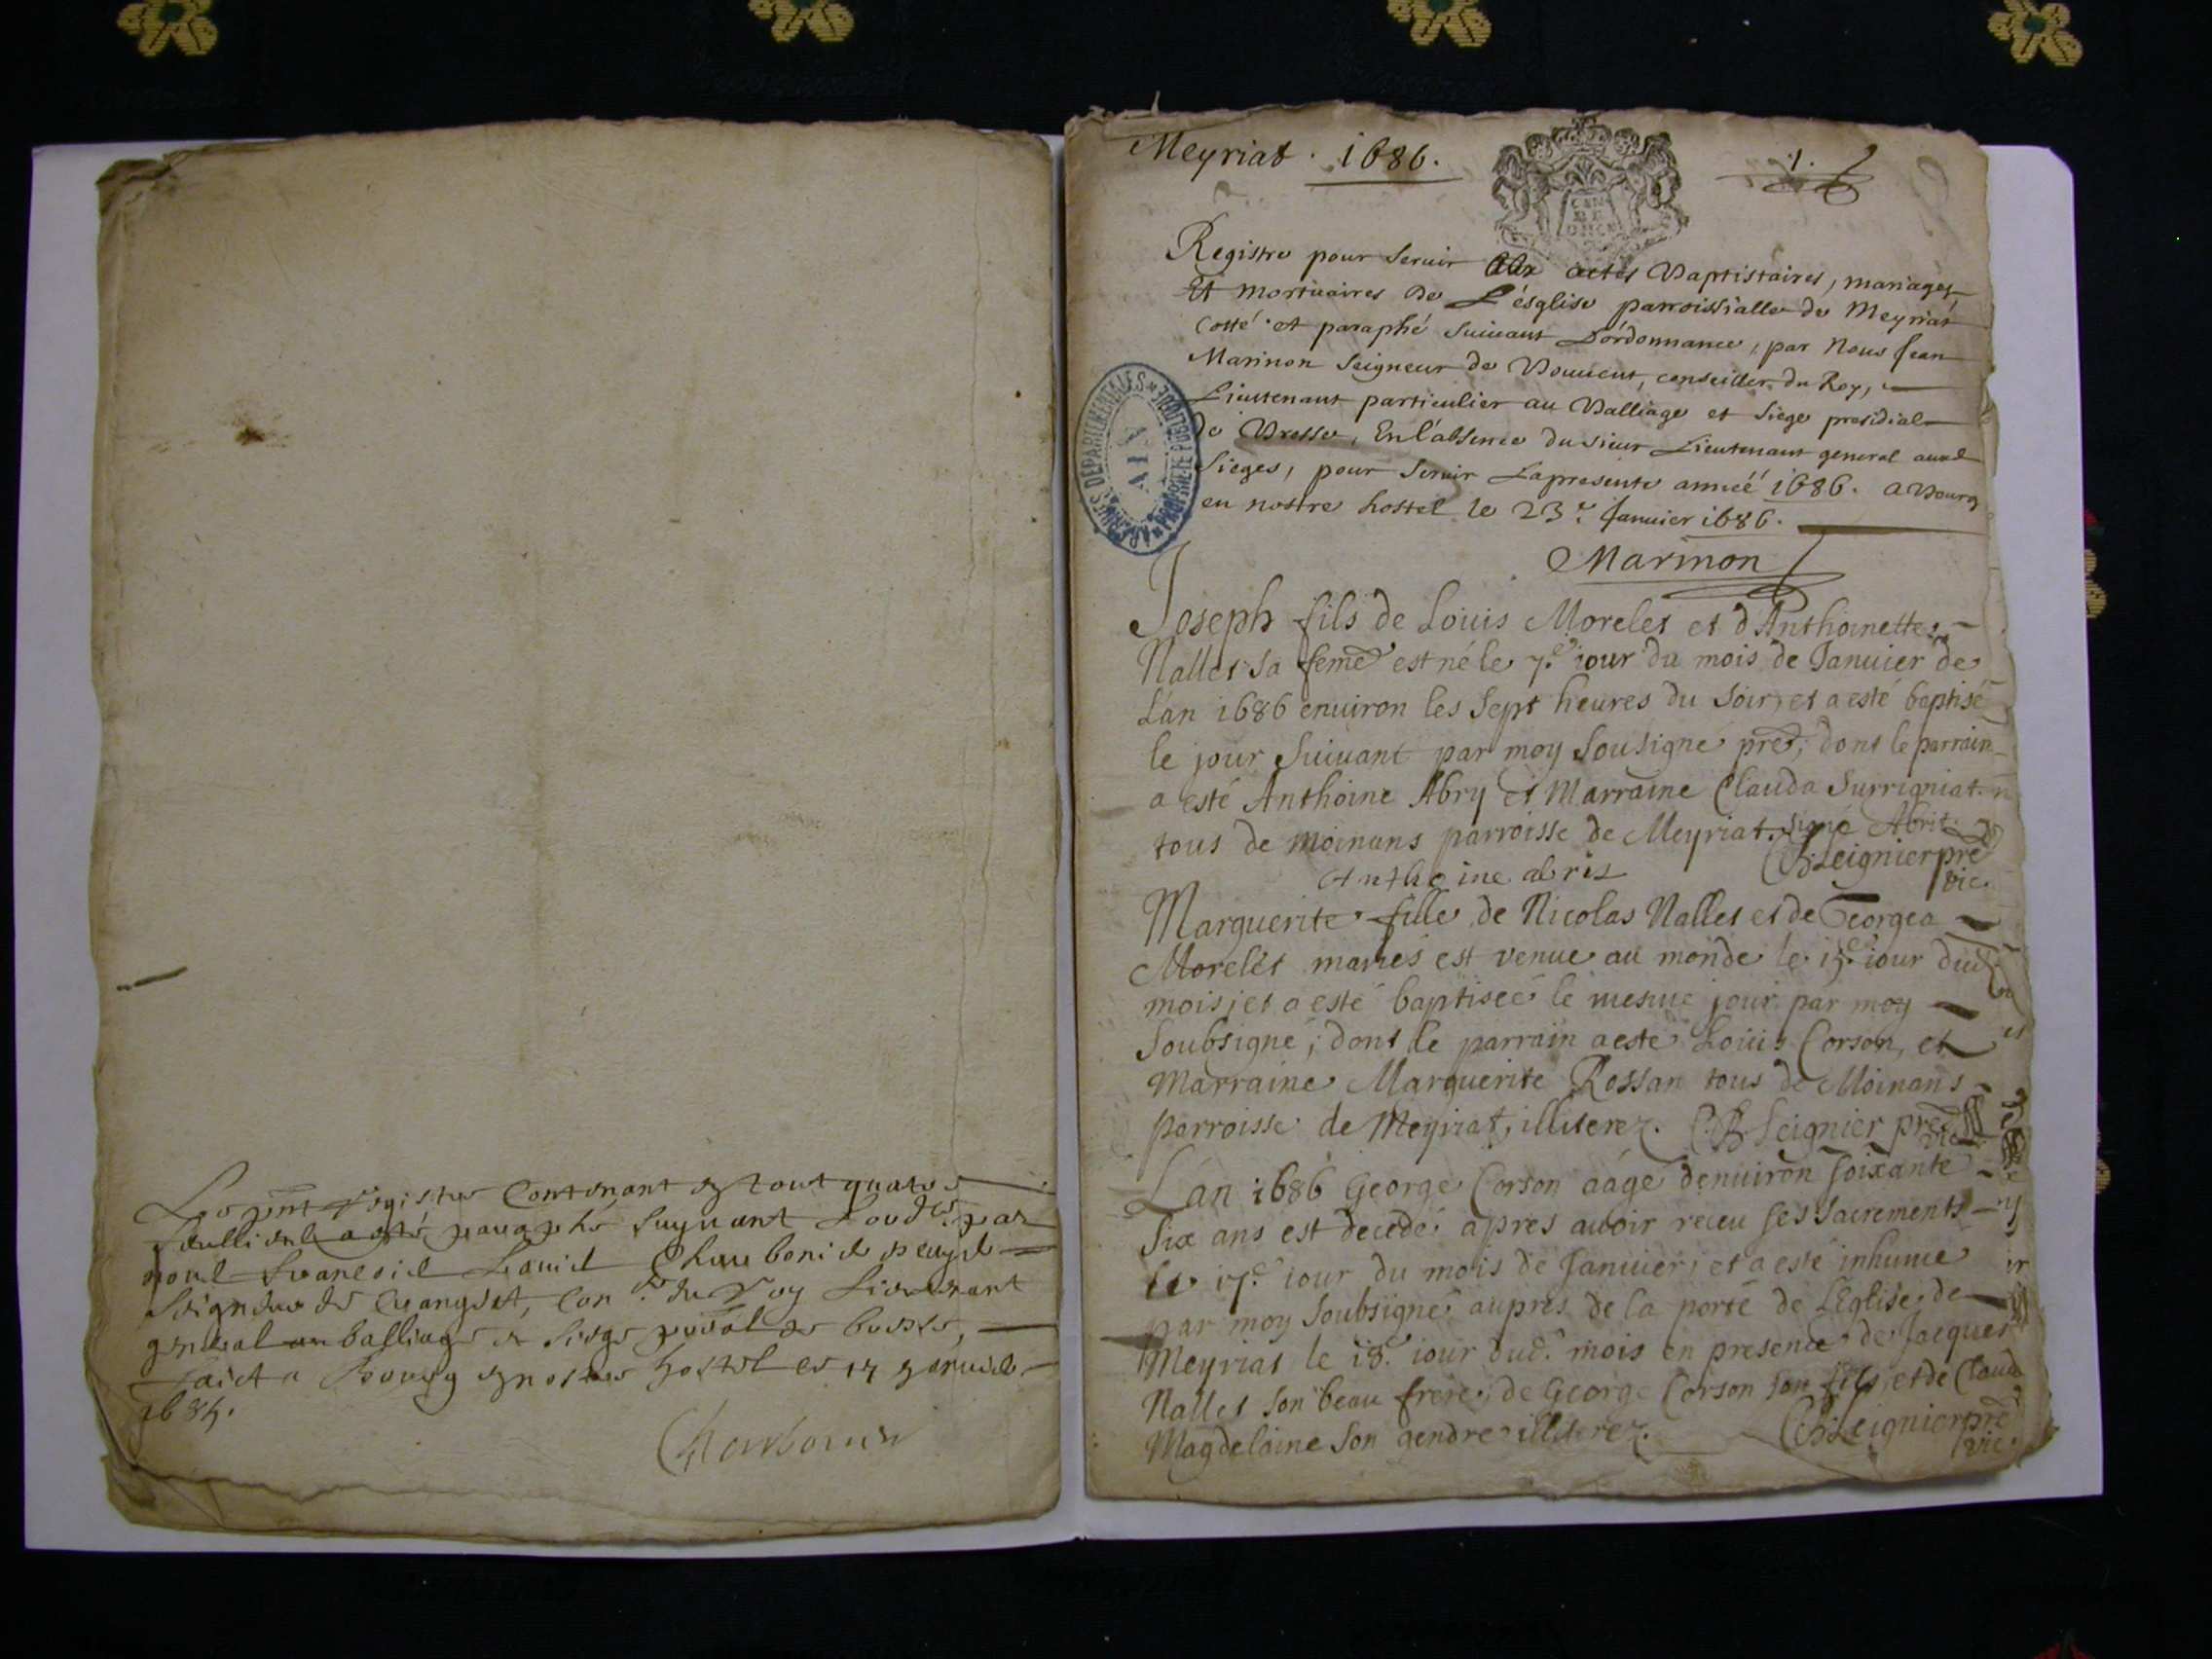 Le pnt Registre Contenant en tout quatre
feullietz a esté paraphé suyuant Lord.ce par
nous francois Louis Charbonier escuyer
Seigneur de Crangeat, con.er du Roy Lieutenant
general au balliage et siege p̄nāl de bresse,
faict a Bourg en nostre hostel ce 17 Januier
Charbonier
Meyriat . 1686.
.1.
Registre pour seruir aux actes Baptistaires, mariages,
Et mortuaires de L'ésglise parroissialle de Meyriat
Cotté et paraphé suiuant L'órdonnance, par Nous Jean
Marinon Seigneur de Bouuent, conseiller du Roy,
Lieutenant particulier au Balliage et siege presidial
de Bresse, En l'absence du sieur Lieutenant general ausd
sieges, pour seruir La presente année 1686. a Bourg
en nostre hostel le 23.e Januier 1686.
Marinon
ARCHIVES DEPARTEMENTALES * PROPRIETE PUBLIQUE *
AIN
Joseph fils de Louis Morelet et d'Anthoinette
Nallet sa feme est né le 7.e iour du mois de Januier de
L'an 1686 enuiron les Sept heures du Soir, et a esté baptisé
le jour Suiuant par moy Sousigné pre, dont le parrain
a esté Anthoine Abry et Marraine Clauda Surrigniat
tous de Moinans parroisse de Meyriat. signé Abrit.
Anthoine abris
CB Seignier pre
vic.
Marguerite fille de Nicolas Nallet et de Georgea
Morelet mariés est venue au monde le 15.e iour dud.
mois, et a esté baptiseé le mesme jour par moy
Soubsigné, dont le parrain a esté Louis Corson, et
Marraine Marguerite Rossan tous de Moinans
parroisse de Meyriat, illiterez. CB Seignier pre
vic
L'an 1686 George Corson aágé denuiron Soixante
Six ans est decedé apres auoir receu ses Sacrements
le 17.e iour du mois de Januier, et a esté inhumé
par moy Soubsigné aupres de la porte de L'Eglise de
Meyriat le 18.e iour dud. mois en presence de Jacques
Nallet son beau frere, de George Corson son fils, et de Claud
Magdelaine Son gendre illiterez.
CB Seignier pre
vic.